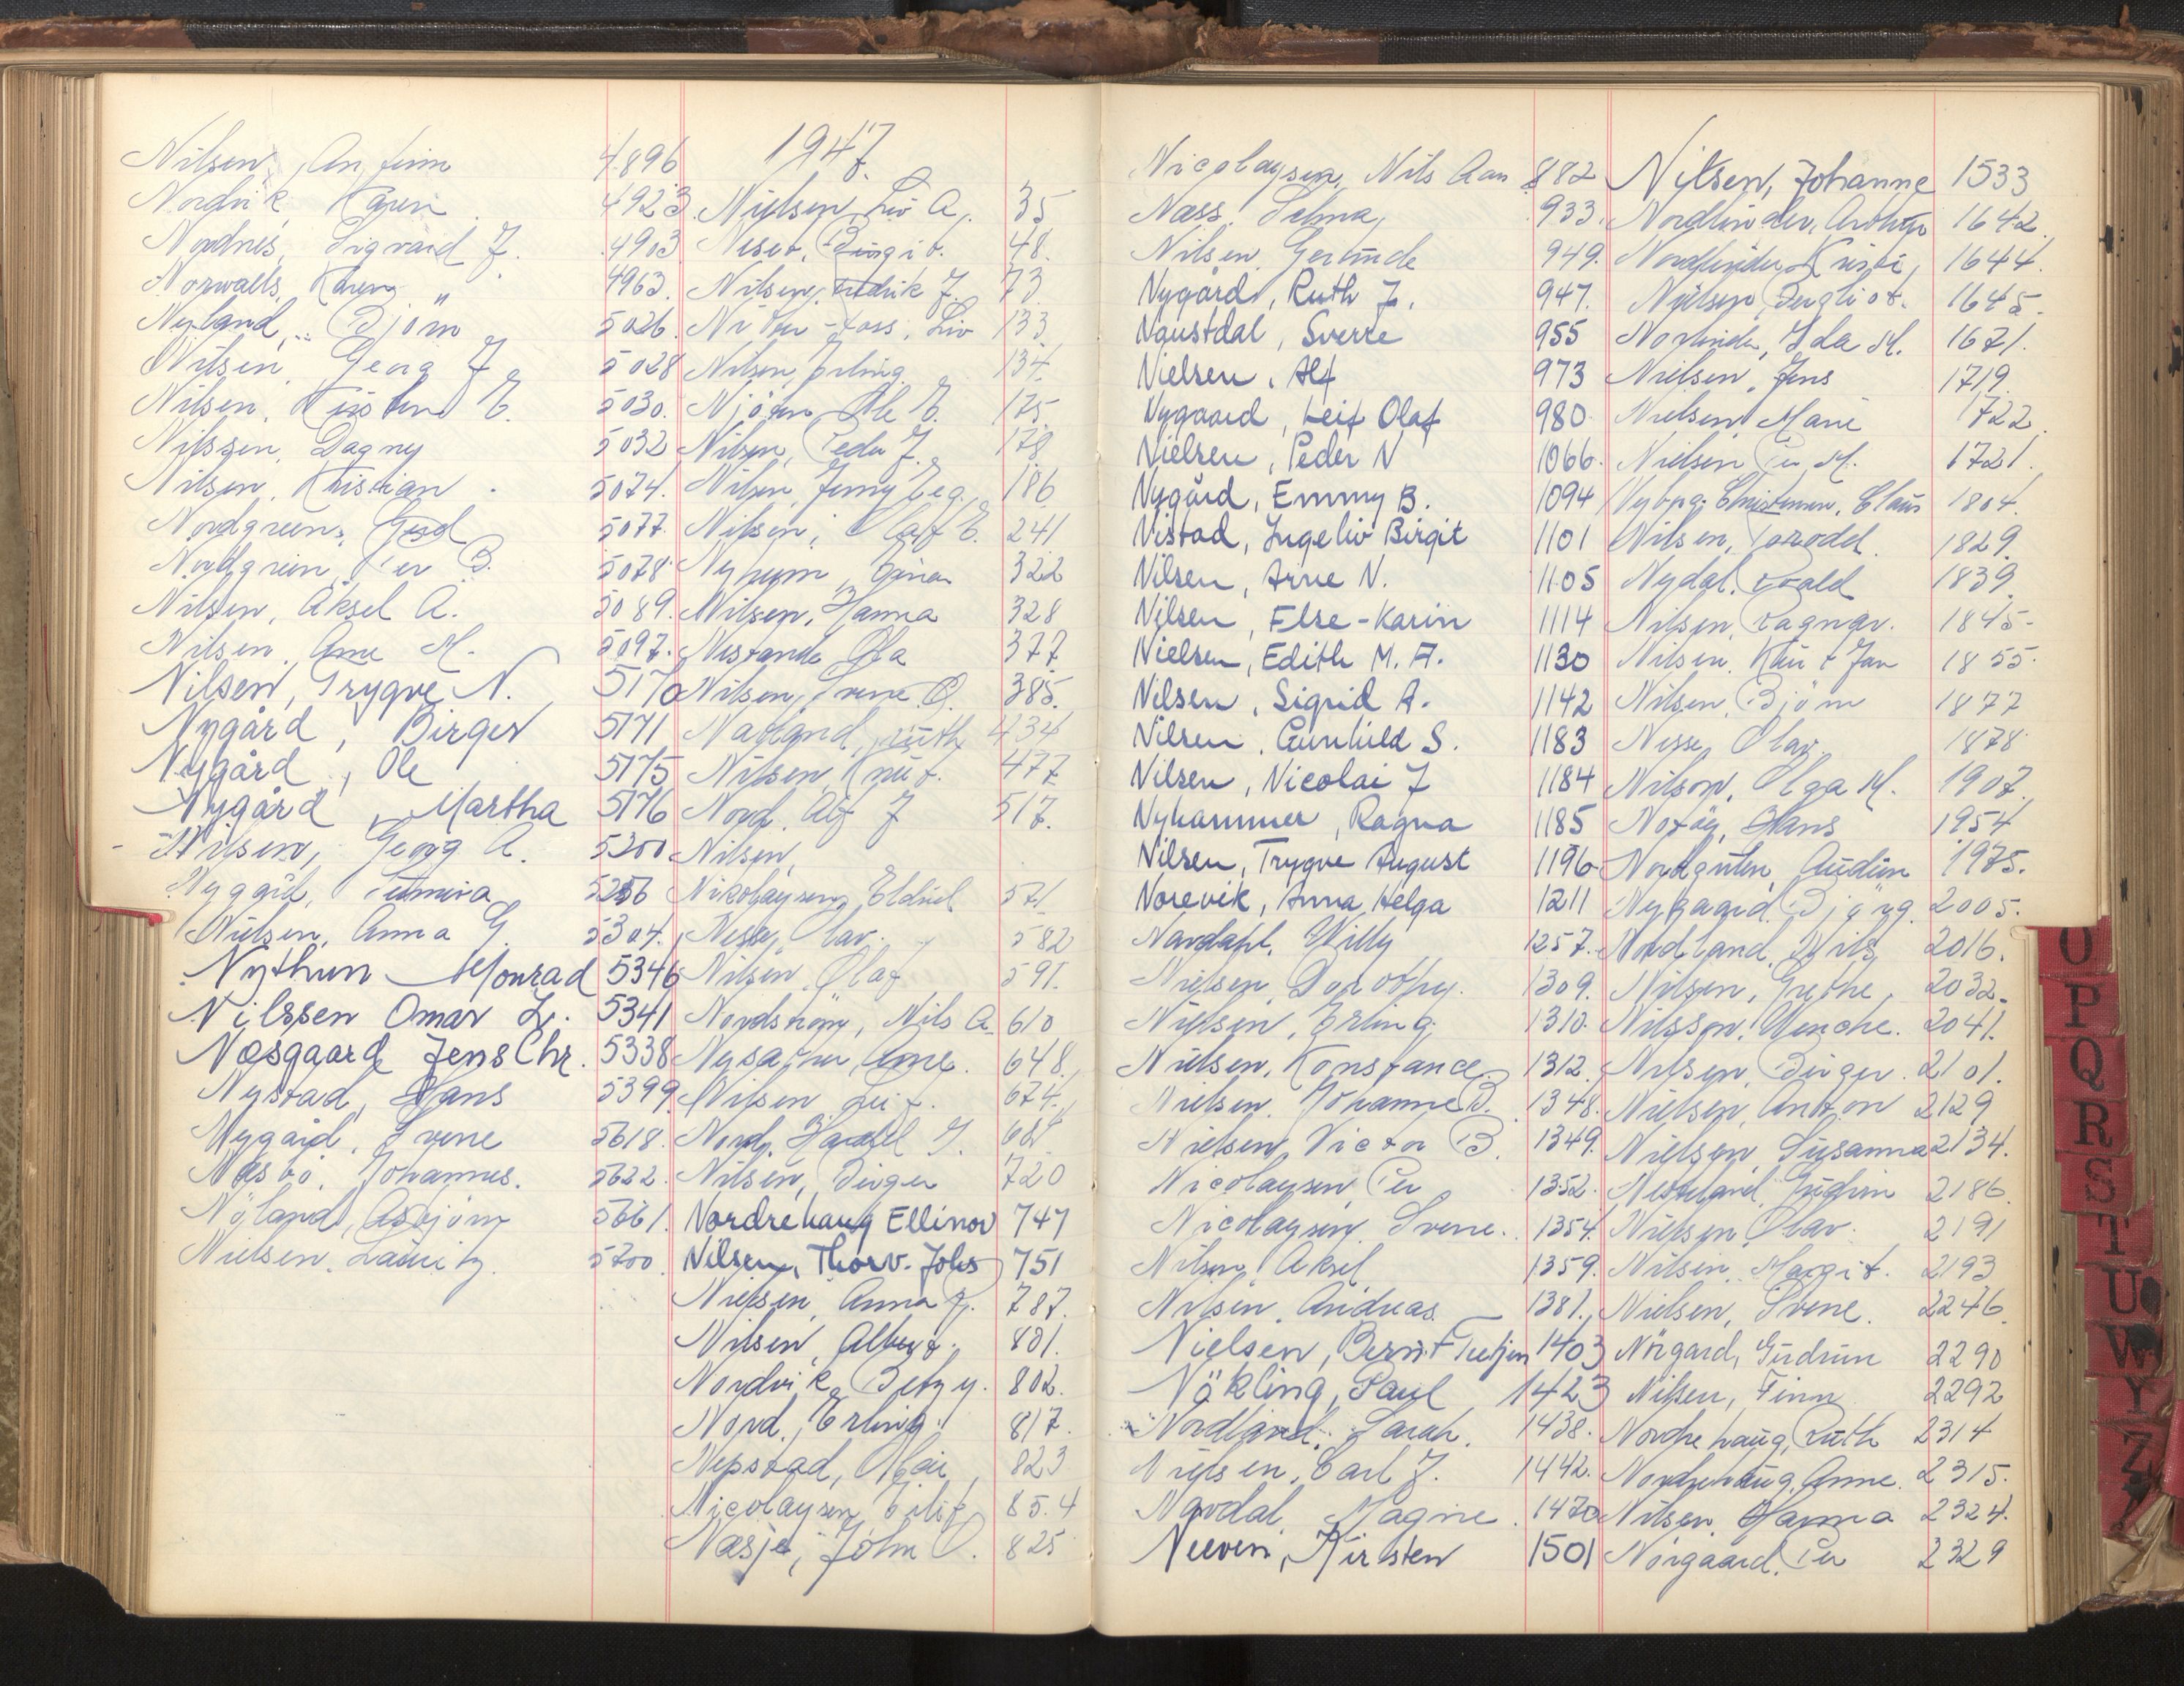 Nilsen, Anfinn 4896
Nordvik, Karen 4923
Nordnes, Sigvard J. 4903
Norwalls, Karen 4963
Nyland, Bjørn 5026
Nilsen, Georg J. 5028
Nilsen, Kristen E. 5030.
Nilssen, Dagny 5032
Nilsen, Kristian 5074.
Nordgreen, Gerd 5077.
Nordgreen, Per B. 5078
Nilsen, Aksel A. 5089.
Nilsen, Arne M. 5097.
Nilsen, Trygve N. 5170
Nygård, Birger 5171
Nygård, Ole 5175
Nygård, Martha 5176
Nilsen, Georg A. 5200
Nygård, 5256
Nielsen, Anna G. 5304.
Nythun Monrad 5346
Nilssen Omar L. 5341
Næsgaard Jens Chr. 5338
Nystad, Hans 5399
Nygård, Sverre 5618.
Næsbø, Johannes. 5622.
Nyland, Asbjørn 5661.
Nielsen, Lauritz 5700
1947.
Nielsen Liv A. 35
Neset, Birgit. 48.
Nilsen, Fredrik J. 73
Liv 133
Nilsen, Erling 134.
Njøten Ole E. 175
Nilsen, Peder J. 178
Nilsen, Jenny Eeg. 186
Nilsen, Olaf E. 241
Nyheim, Einar 322
Nilsen, Hanna 328
Nestande Ola 377
Nilsen, Sverre O. 385.
Natland, Ruth 434
Nilsen, Knut. 477
Nord, Alf J 517.
Nilsen,
Nikolaysen, Eldrid 571
Nesse, Olav. 582
Nilsen, Olaf 591.
Nordstrøm, Nils A. 610
Nysæther, Arne. 648.
Nilsen Leif. 674.
Nord, Harald J. 681
Nilsen, Birger 720
Nordrehaug Ellinor 747
Nilsen, Thorv. Johs 751
Nielsen, Anna J. 787.
Nilsen, Albert. 801.
Nordvik, Betzy. 802.
Nord, Erling. 817.
Nepstad, Olai, 823
Nicolaysen, Eilif 854
Næsje, John O. 825
Nicolaysen, Nils Aan 882
Næss, Selma, 933.
Nilsen, Gerunde 949.
Nygård, Ruth J. 947.
Naustdal, Sverre 955
Nielsen, Alf 973
Nygaard, Leif Olaf 980
Nielsen, Peder N 1066.
Nygård, Emmy B. 1094
Nistad, Ingeliv Birgit 1101
Nilsen, Arne N. 1105
Nilsen, Else-Karin 1114
Nielsen, Edith M. A. 1130
Nilsen, Sigrid A. 1142
Nilsen, Gunhild S. 1183
Nilsen, Nicolai J 1184
Nyhammer, Ragna 1185
Nilsen, Trygve August 1196
Norevik, Anna Helga 1211
Nardahl, Willy 1257.
Nielsen, Dorothy. 1309.
Nielsen, Erling. 1310.
Nielsen, Konstance. 1312.
Nielsen, Johanne B. 1348.
Nielsen, Victor B. 1349.
Nicolaysen, Per 1352.
Nicolaysen, Sverre. 1354.
Nilsen, Aksel 1359.
Nilsen, Andreas. 1381.
Nielsen, Bernt Tietjen 1403
Nökling, Paul 1423
Nordland, Sarah. 1438.
Nielsen, Carl J. 1442.
Nordal, Magne. 1470
Neeven, Kirsten 1501
Nilsen, Johanne 1533
Nordlinder, Arthur 1642.
Nordlinder, Kristi, 1644.
Nielsen, Bergliot. 1645.
Norlinder, Ida M. 1671.
Nielsen, Jens 1719.
Nielsen, Marie 1722.
Nielsen, Per M. 1721.
Nyborg-Christensen, Claus 1804.
Nilsen, Torodd. 1829.
Nydal, Evald 1839.
Nilsen, Ragnar. 1845.
Nilsen, Kurt Jan 1855.
Nilsen, Bjørn 1877
Nesse, Olav. 1878
Nilson, Olga M. 1907.
Notøy, Hans 1954
Nordgulen, Audun 1975.
Nygaard, Bjørg. 2005.
Nordland, Nils 2016.
Nilsen, Grethe, 2032.
Nilsson, Wenche. 2041.
Nilsen, Birger. 2101.
Nielsen, Anton 2129
Nielsen, Susanna 2134.
Nesteland, Gudrun 2186
Nielsen, Olav. 2191
Nilsen, Margit. 2193
Nielsen, Sverre. 2246.
Nörgard, Gudrun 2290
Nilsen, Finn 2292
Nordrehaug, Ruth 2314
Nordrehaug, Anne. 2315.
Nilsen, Hanna 2324.
Nörgaard, Per 2329
O
P
Q
R
S
T
U
W
Y
Z